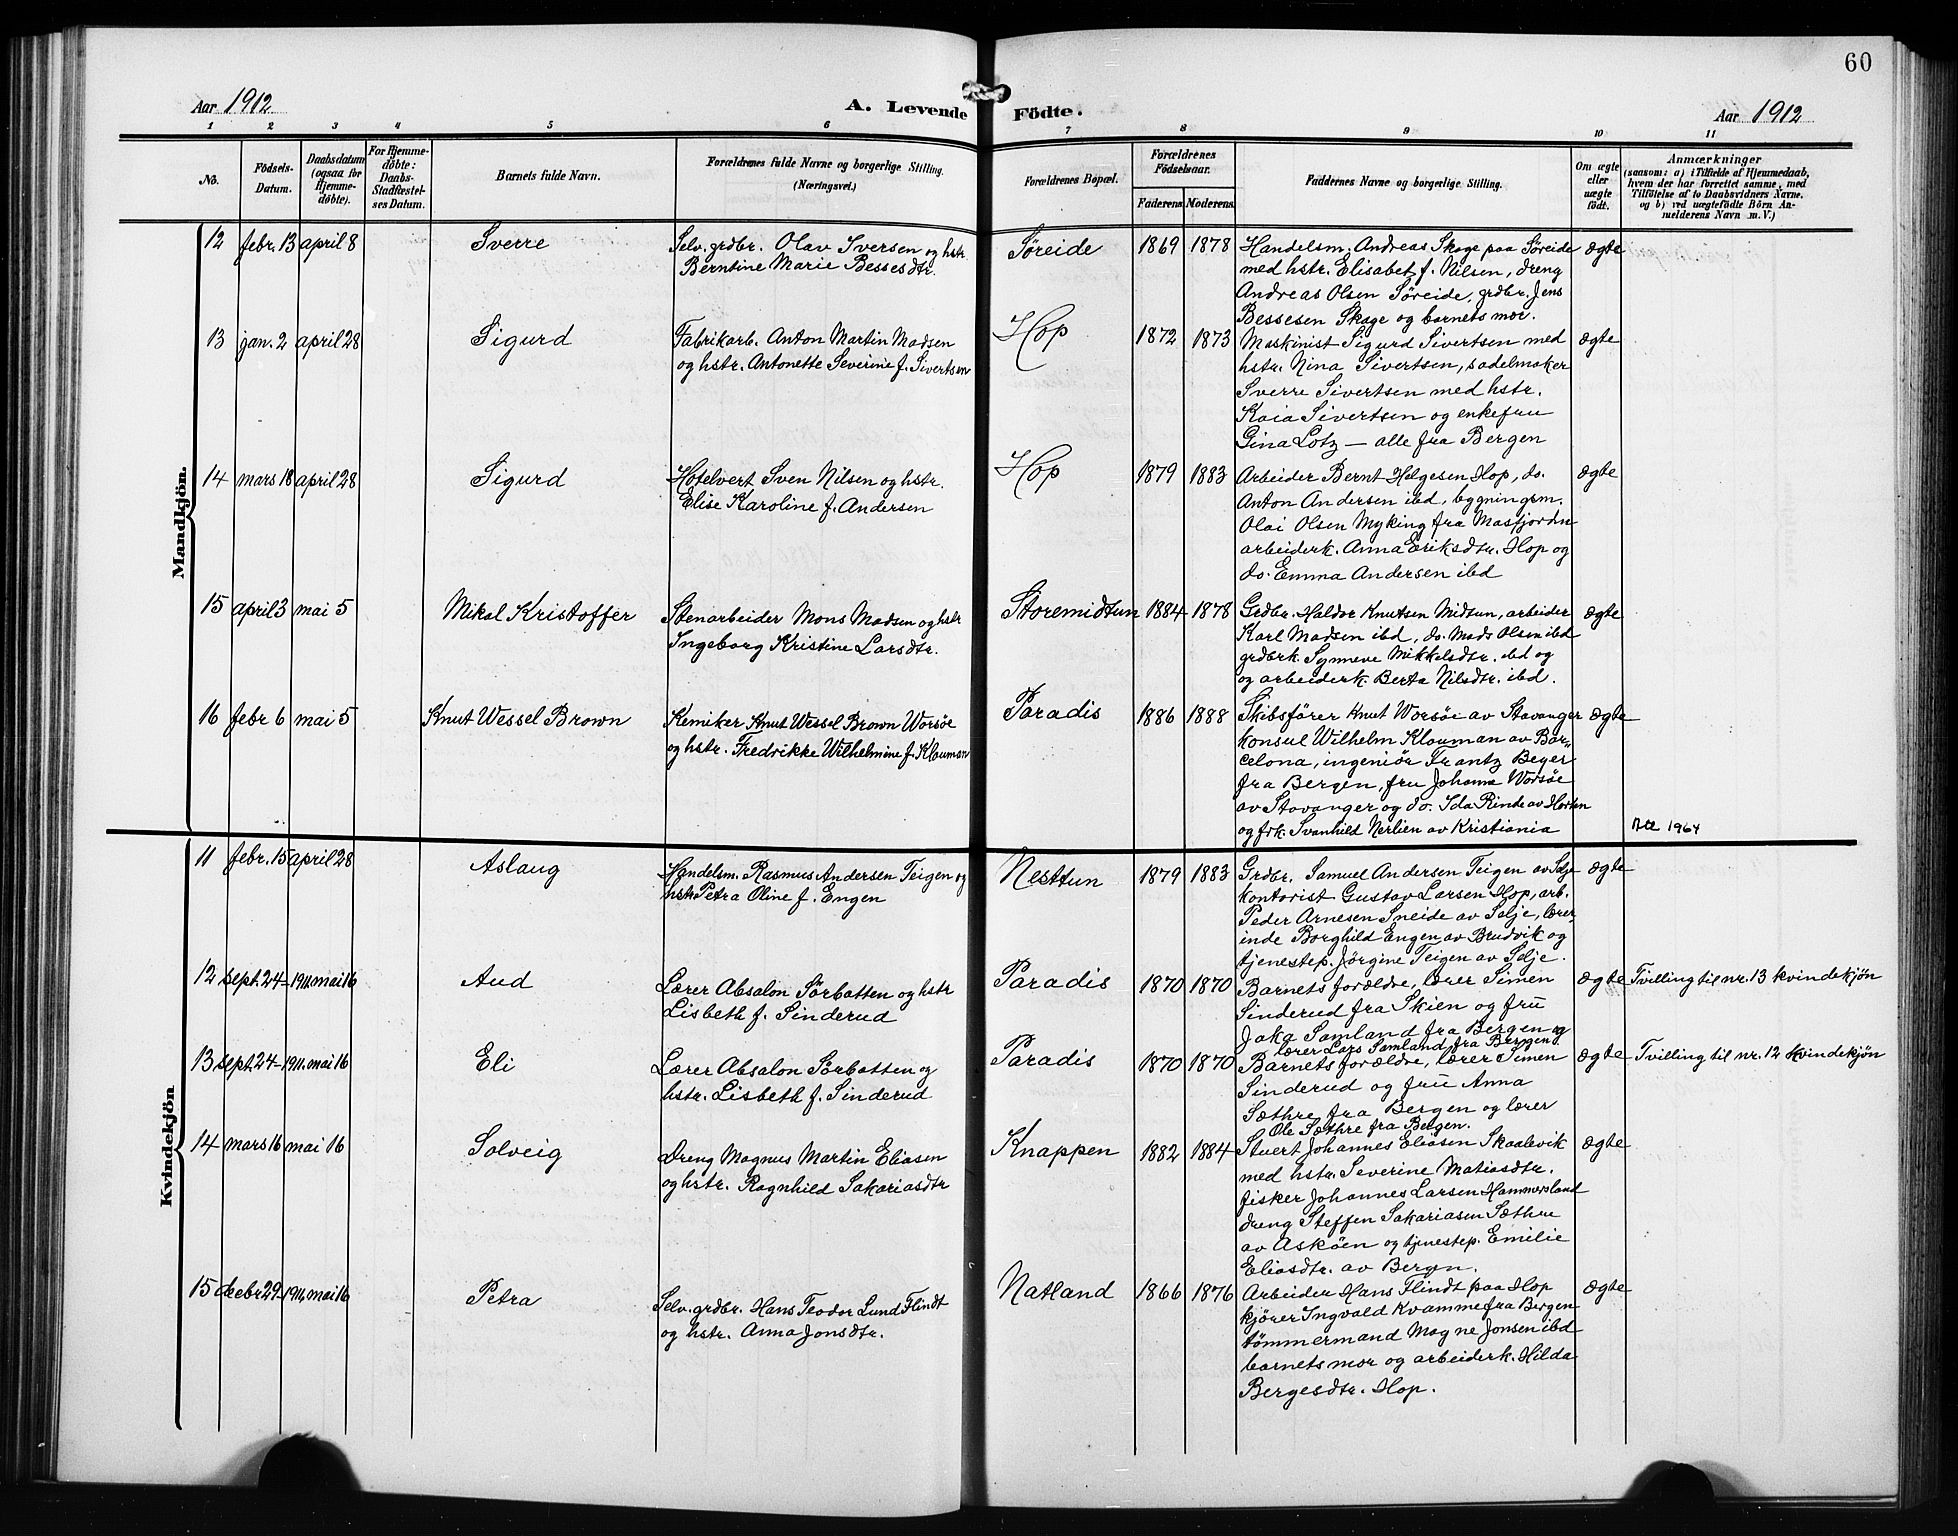 60
Aar 1912
A. Levende Födte.
Aar 1912
1 2 3 4 5 6 7 8 9 10 11
No.
Födsels-
Datum.
Daabsdatum
(ogsaa for
Hjemme-
døbte).
For Hjemme-
døbte:
Daabs-
Stadfæstel-
ses Datum.
Barnets fulde Navn.
Forældrenes fulde Navne og borgerlige Stilling.
(Næringsvei.)
Forældrenes Bopæl.
Forældrenes
Födselsaar.
Faderens. Moderens.
Faddernes Navne og borgerlige Stilling.
Om ægte
eller
uægte
født.
Anmærkninger
(saasom: a) i Tilfælde af Hjemmedaab,
hvem der har forrettet samme, med
Tilføielse af to Daabsvidners Navne.
og b) ved uægtefödte Börn An-
melderens Navn m. V.)
Mandkjön.
12 febr. 13 april 8 Sverre
Selv. grdbr. Olav Iversen og hstr.
Berntine Marie Bessesdtr.
Søreide 1869 1878
Handelsm. Andreas Skage paa Søreide
med hstr. Elisabet f. Nilsen, dreng
Andreas Olsen Søreide, grdbr. Jens
Bessesen Skage og barnets mor.
ægte
13 jan. 2 april 28 Sigurd
Fabrikarb. Anton Martin Madsen
og hstr. Antonette Severine f. Sivertsen
Hop 1872 1873
Maskinist Sigurd Sivertsen med
hstr. Nina Sivertsen, sadelmaker
Sverre Sivertsen med hstr.
Kaia Sivertsen og enkefru
Gina Lotz — alle fra Bergen
ægte
14 mars 18 april 28 Sigurd
Hotelvert Sven Nilsen og hstr.
Elise Karoline f. Andersen
Hop 1879 1883
Arbeider Bernt Helgesen Hop, do.
Anton Andersen ibd, bygningsm.
Olai Olsen Myking fra Masfjordn
arbeiderk. Anna Eriksdtr. Hop og
do. Emma Andersen ibd
ægte
15 april 3 mai 5 Mikal Kristoffer
Stenarbeider Mons Madsen og hstr
Ingeborg Kristine Larsdtr.
Storemidtun 1884 1878
Grdbr. Haldor Knutsen Midtun, arbeider
Karl Madsen ibd, do. Mads Olsen ibd
grdbrk. Synneve Mikkelsdtr. ibd og
og arbeiderk. Berta Nilsdtr. ibd.
ægte
16 febr 6 mai 5 Knut Wessel Brown
Kemiker Knut Wessel Brown Worsøe
og hstr. Fredrikke Wilhelmine f. Klouman
Paradis 1886 1888
Skibsfører Knut Worsøe av Stavanger
konsul Wilhelm Klouman av Bar-
celona, ingeniør Frantz Beyer
fra Bergen, fru Johanne Worsøe
av Stavanger og do. Ida Rinde av Horten
og frk. Svanhild Nerlien av Kristiania
ægte
1964
Kvindekjön
11 febr. 15 april 28 Aslaug
Handelsm. Rasmus Andersen Teigen og
hstr. Petra Oline f. Engen
Nesttun 1879 1883
Grdbr. Samuel Andersen Teigen av Selje
kontorist Gustav Larsen Hop, arb.
Peder Arnesen Sneide av Selje, lærer-
inde Borghild Engen av Brudvik og
tjenestep. Jørgine Teigen av Selje.
ægte
12 sept. 24-1911. mai 16 Aud
Lærer Absalon Sørbotten og hstr
Lisbeth f. Sinderud
Paradis 1870 1870
Barnets forældre, lærer Simen
Sinderud fra Skien og fru
Jaka Samland fra Bergen og
lærer Lars Samland fra Bergen
ægte
Tvilling til nr. 13 kvindekjøn
13 sept. 24-1911. mai 16 Eli
Lærer Absalon Sørbotten og
hstr. Lisbeth f. Sinderud
Paradis 1870 1870
Barnets forældre, lærer Simen
Sinderud og fru Anna
Sæthre fra Bergen og lærer
Ole Sæthre fra Bergen.
ægte
Tvilling til nr. 12 kvindekjøn
14 mars 16 mai 16 Solveig
Dreng Magnus Martin Eliasen
og hstr. Ragnhild Sakariasdtr
Knappen 1882 1884
Stuert Johannes Eliasen Skaalevik
med hstr. Severine Matiasdtr.
fisker Johannes Larsen Hammersland
dreng Steffen Sakariasen Sæthre
av Askøen og tjenestep. Emilie
Eliasdtr. av Bergen.
ægte
15 decbr 29-1911. mai 16 Petra
Selv. grdbr. Hans Teodor Lund Flindt
og hstr. Anna Jonsdtr.
Natland 1866 1876
Arbeider Hans Flindt paa Hop
kjører Ingvald Kvamme fra Bergen
tømmermand Magne Jonsen ibd
barnets mor og arbeiderk. Hilda
Bergesdtr. Hop.
ægte